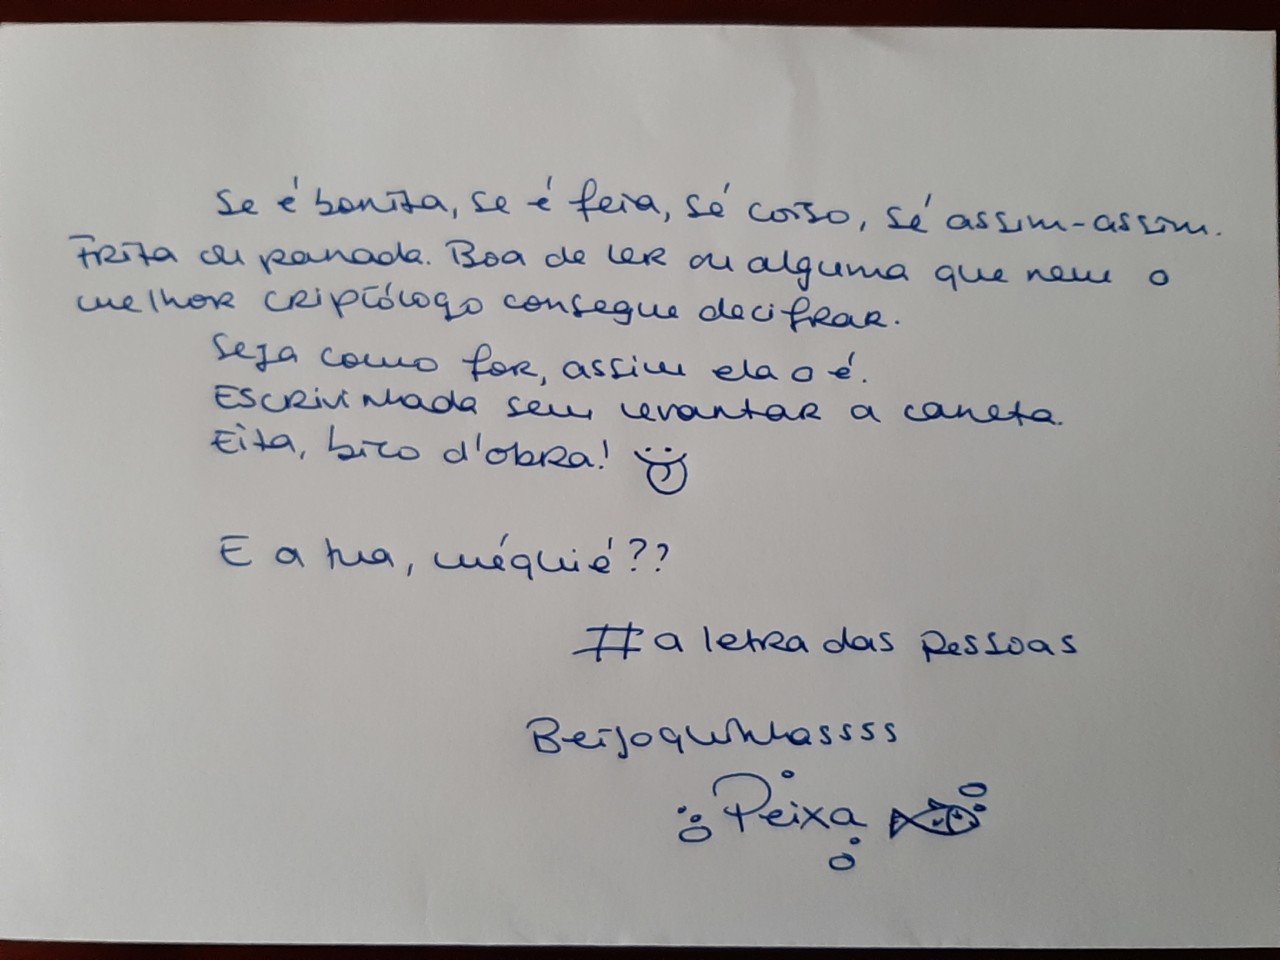 Se é bonita, se é feia, sé coiso, sé assim-assim.
Frita ou panada. Boa de ler ou alguma que nem o
melhor criptólogo consegue decifrar.
Seja como for, assim ela o é.
Escrivinhada sem levantar a caneta.
Eita, bico d'obra!
E a tua, méquié??
#a letra das pessoas
Beijoquinhassss
Peixa